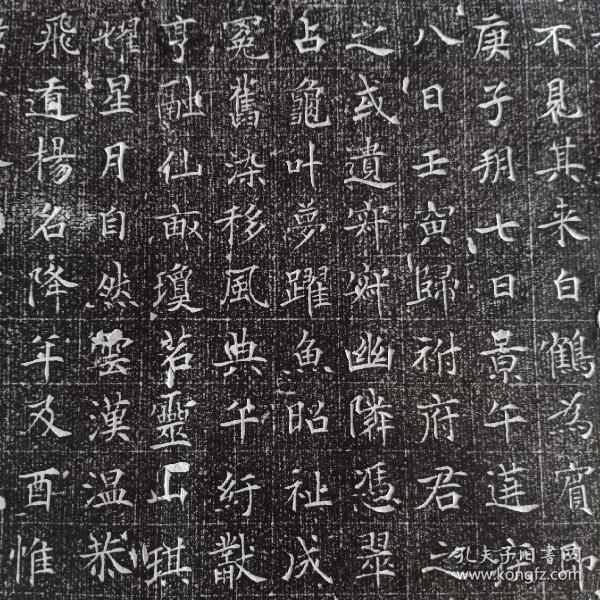 不見其来白鶴為賓
庚子朔七日景午
八日壬寅歸祔府君之
之或遺窀穸幽隣憑翠
占龜叶夢躍魚昭祉成
冕舊染移風典午紆
亨融仙畝瓊若靈山琪
燿星月自然雲漢温恭
飛遁楊名降年及酉惟
孔夫子旧书网
www.kongfz.com